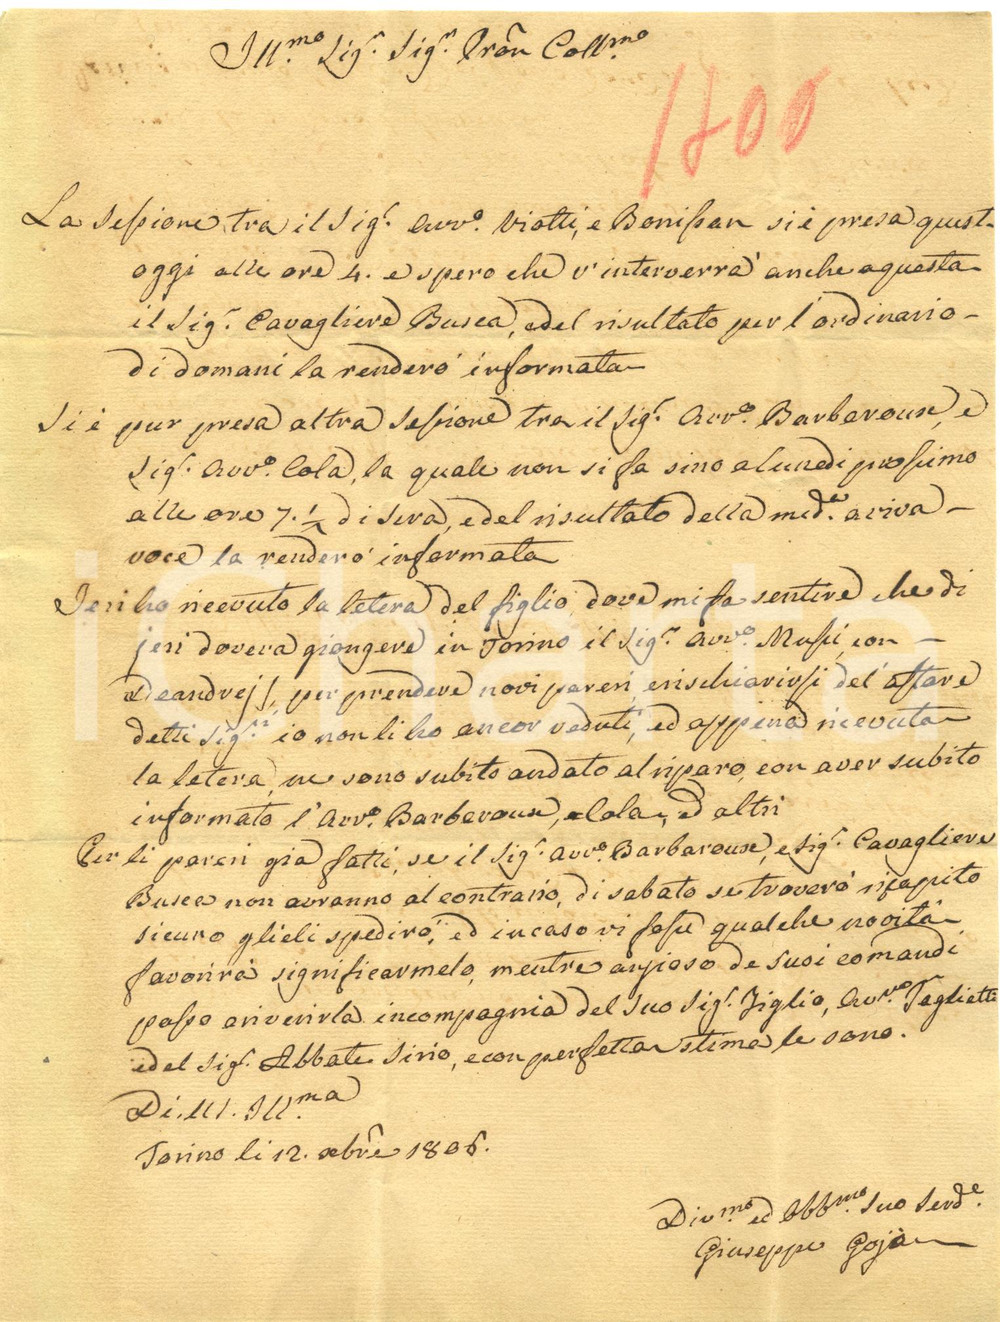 Ill.mo Sig.r Sig.r Pron Coll.mo
1800
La sessione tra il Sig.r Avv.o Viotti, e Bonissan si è presa quest-
oggi alle ore 4. e spero che v'interverrà anche a questa
il Sig.r Cavagliere Busca, e del risultato per l'ordinario
di domani la renderò informata
Si è pur presa altra sessione tra il Sig.r Avv.o Barbaroux, e
Sig.r Avv.o Cola, la quale non si fa sino a lunedì prossimo
alle ore 7. 1/2 di sera, e del risultato della med.e a viva
voce la renderò informata
Jeri ho ricevuto la letera del figlio, dove mi fa sentire che di
jeri dovera giongere in Torino il Sig.r Avv.o Mussi, con
Deandrejs, per prendere novi pareri, e rischiarirsi del'affare
detti Sig.ri io non li ho ancor veduti, ed appena ricevuta
la letera, ne sono subito andato al riparo, con aver subito
informato l'Avv.o Barberoux, e Cola, ed altri
Per li pareri già fatti, se il Sig.r Avv.o Barbaroux, e Sig.r Cavagliere
Busca non avranno al contrario, di sabato se troverò ricapito
sicuro glieli spedirò, ed in caso vi fosse qualche novità
favorirà significarmelo, mentre anzioso de suoi comandi
posso a riverirla in compagnia del suo Sig.r Figlio, Avv.o Tagliette
e del Sig.r Abbate Sirio, e con perfetta stima le sono.
Di. V.S. Ill.ma
Torino li 12. xbre 1806.
Div.mo ed Obb.mo suo Serd.e
Giuseppe Goja
iCharta